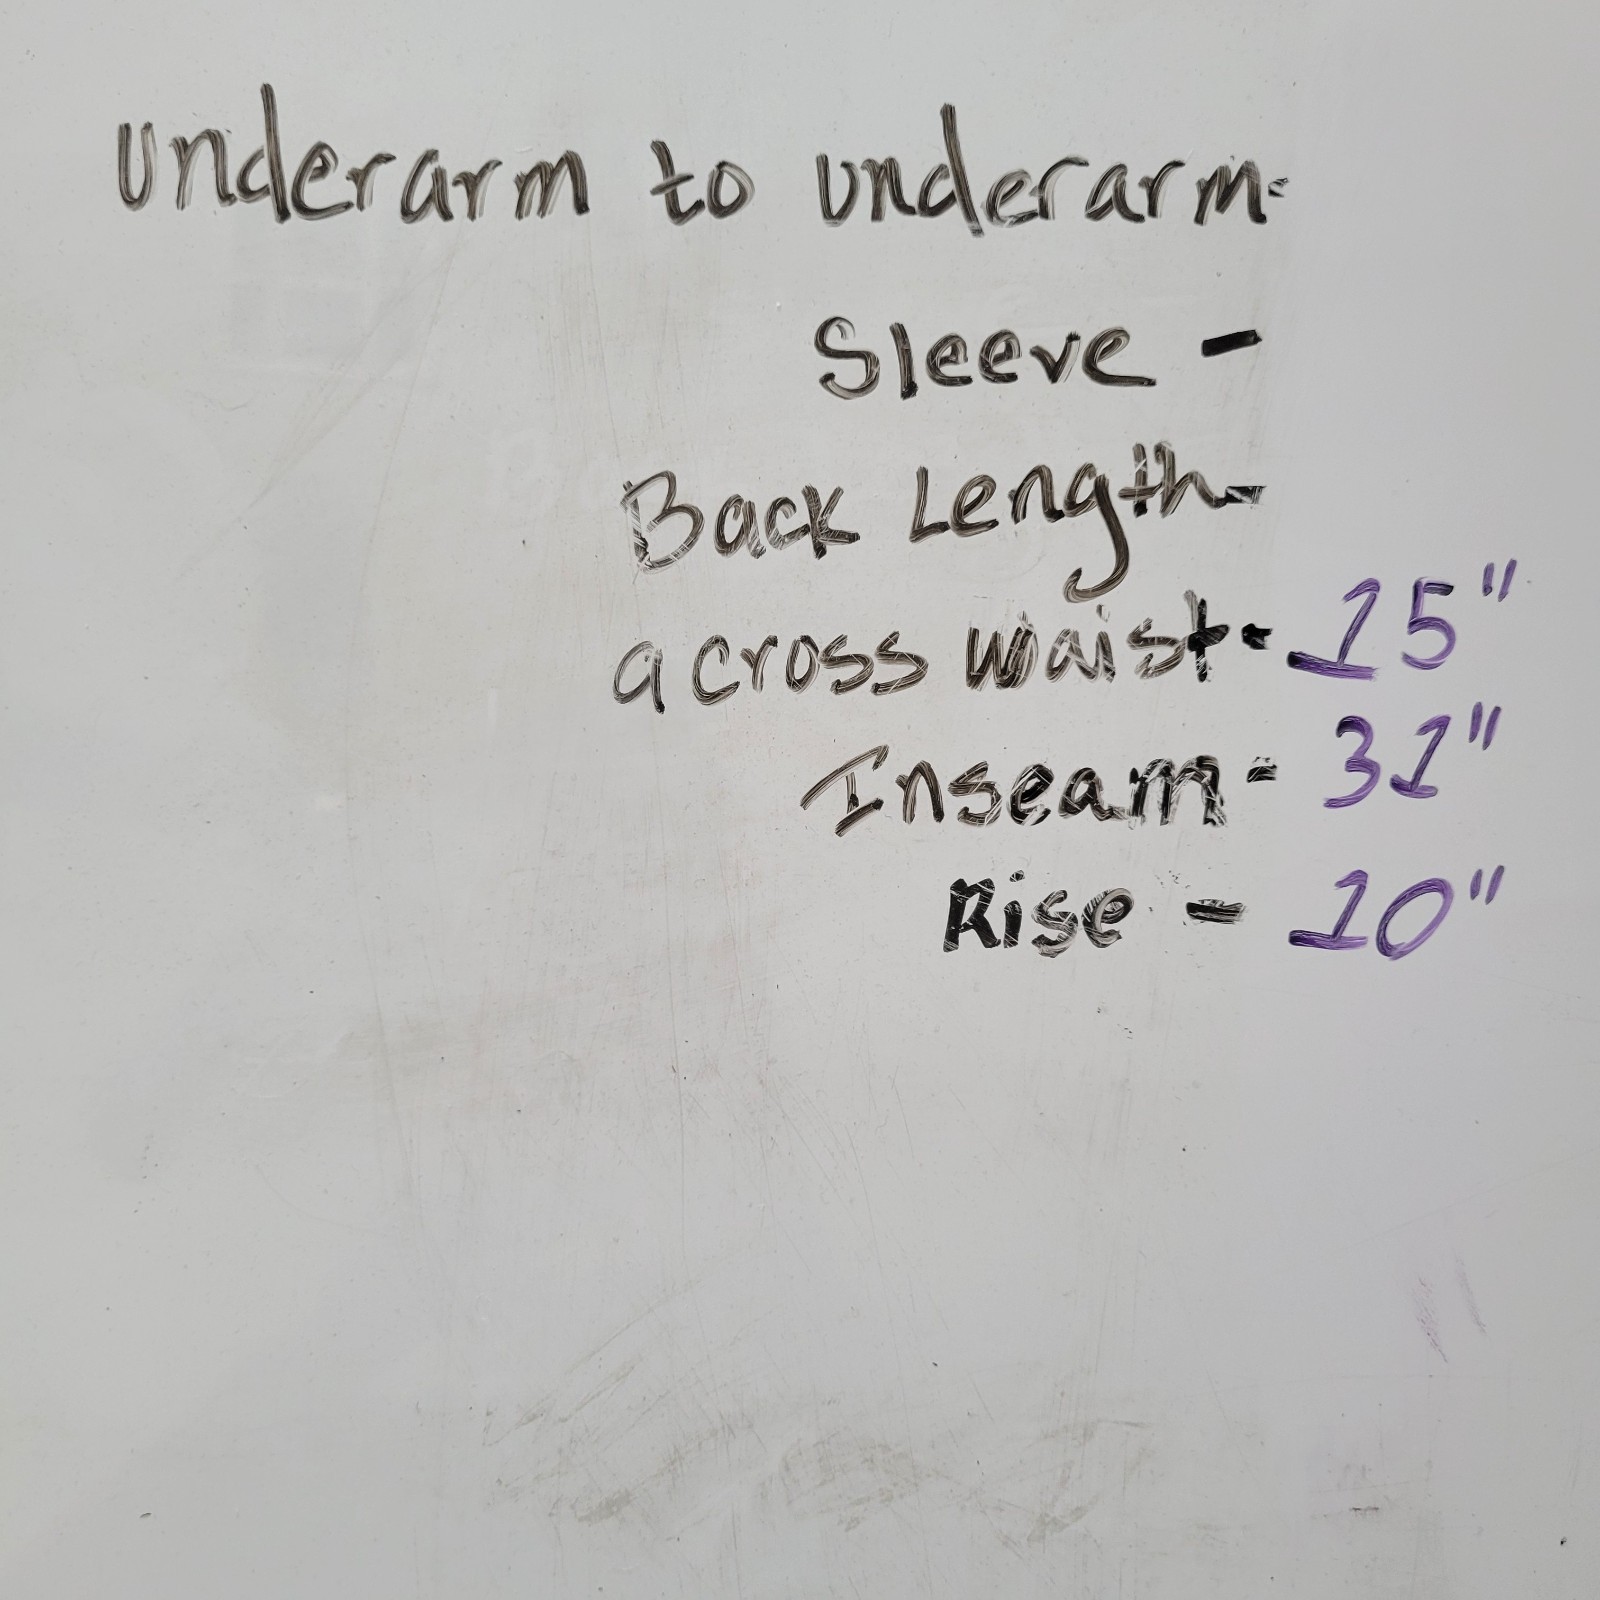 underarm to underarm-
Sleeve -
Back Length-
across waist- 15"
Inseam- 31"
Rise - 10"